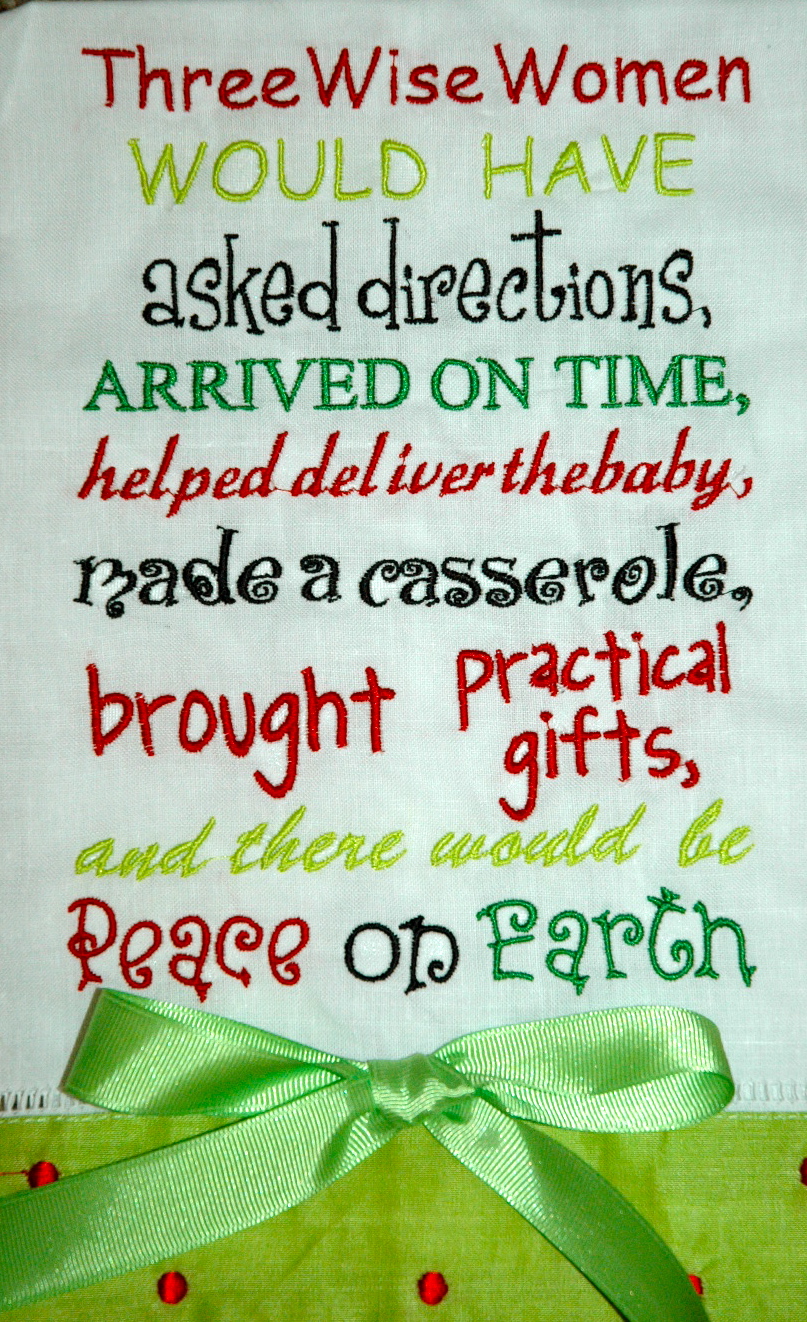 Three Wise Women
WOULD HAVE
asked directions,
ARRIVED ON TIME,
helped deliver the baby,
made a casserole,
brought practical
gifts,
and there would be
Peace on Earth